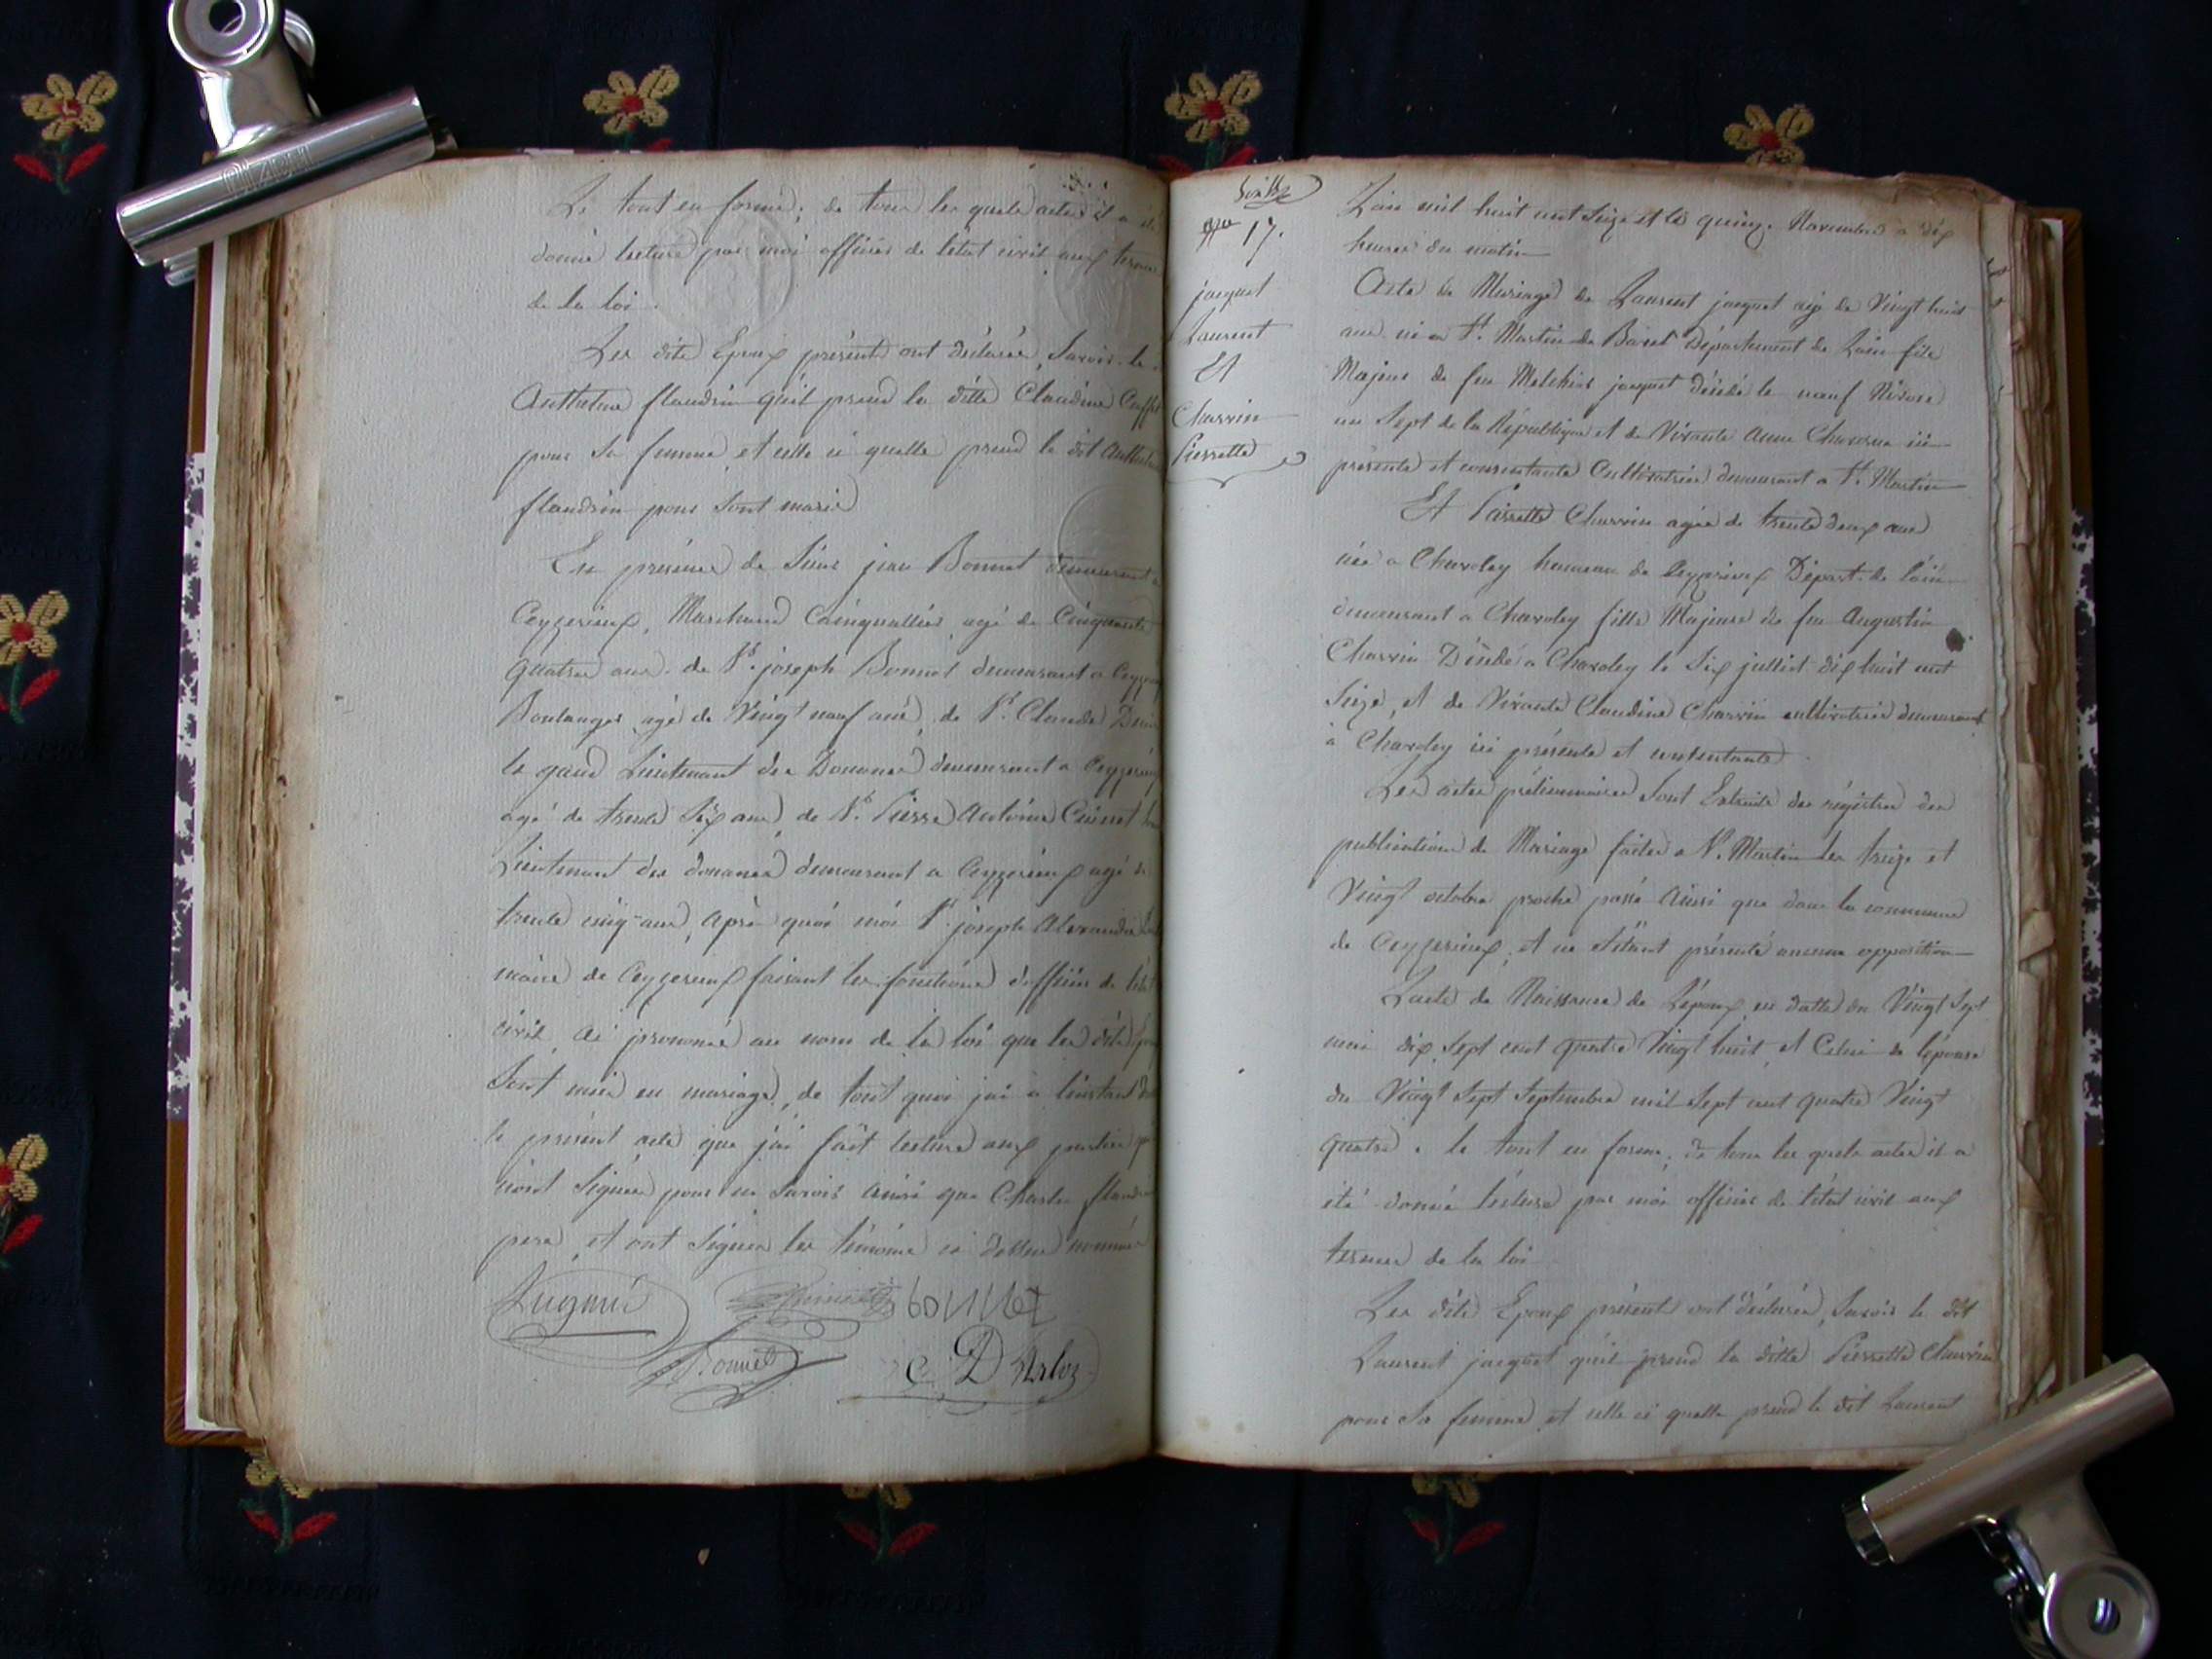 Le tout en forme; de tous les quels actes il a été
donné lecture par moi officier de letat civil aux termes
de la loi.
Les dits Epoux présents ont déclarés, Savoir le
flandrin quil prend la ditte Claudine
pour Sa femme, et celle ci quelle prend le dit
flandrin pour Sont marie
En présence de Sieur jean Bonnet demeurant a
Ceyzerieux, Marchand Cainquallier, agé de Cinquante
quatre ans. de Sr. joseph Bonnet demeurant a
Boulanger agé de Vingt neuf ans, de Sr. Claude
Lieutenant des Douanes demeurant a
agé de trente Six ans, de Sr. Pierre Antoine
Lieutenant des douanes demeurant a Ceyzerieux agé de
trente cinq ans, après quoi moi Sr. joseph Alexandre
maire de Ceyzerieux faisant les fonctions d'officier de
civil, ai prononcé au nom de la loi que les dits
Sont unis en mariage, de tout quoi jai a linstant
le présent acte que j'ai fait lecture aux parties
niont Signées pour ne Savoir ainsi que Charles
pere, et ont Signer les témoins ci dessus nommés
bonnet
Bonnet
17.
jacquet
Laurent
Et
Charvin
Pierrette
Lan mil huit cent Seize et le quinze Novembre a dix
heures du matin
Acte de Mariage de Laurent jacquet agé de Vingt huit
ans né a St. Martin de Bavel Département de Lain fils
Majeur de feu Melchior jacquet décédé le neuf Nivose
an Sept de la République et de Vivante Anne ici
présente et consentante Cultivatrice demeurant a St. Martin
Et Pierrette Charvin agée de trente deux ans
née a hameau de Ceyzerieux Départ. de lain
demeurant a fille Majeure de feu Augustin
Charvin Décédé a le Six juillet dix huit cent
Seize, et de Vivante Claudine Charvin cultivatrice demeurant
à ici présente et consentante.
Les actes préliminaires Sont Extraits des régistres des
publications de Mariage faites a St. Martin les treize et
Vingt octobre proche passé Ainsi que dans la commune
de Ceyzerieux, et ne Sétant présenté aucune opposition
Lacte de Naissance de Lépoux en datte du Vingt Sept
mai dix Sept cent quatre Vingt huit, et Celui de lépouse
du Vingt Sept Septembre mil Sept cent quatre Vingt
quatre. le tout en forme, de tous les quels actes il a
été donné lecture par moi officier de létat civil aux
termes de la loi
Les dits Epoux présents ont déclarés, Savoir le dit
Laurent jacquet quil prend la ditte Pierrette Charvin
pour Sa femme, et celle ci quelle prend le dit Laurent